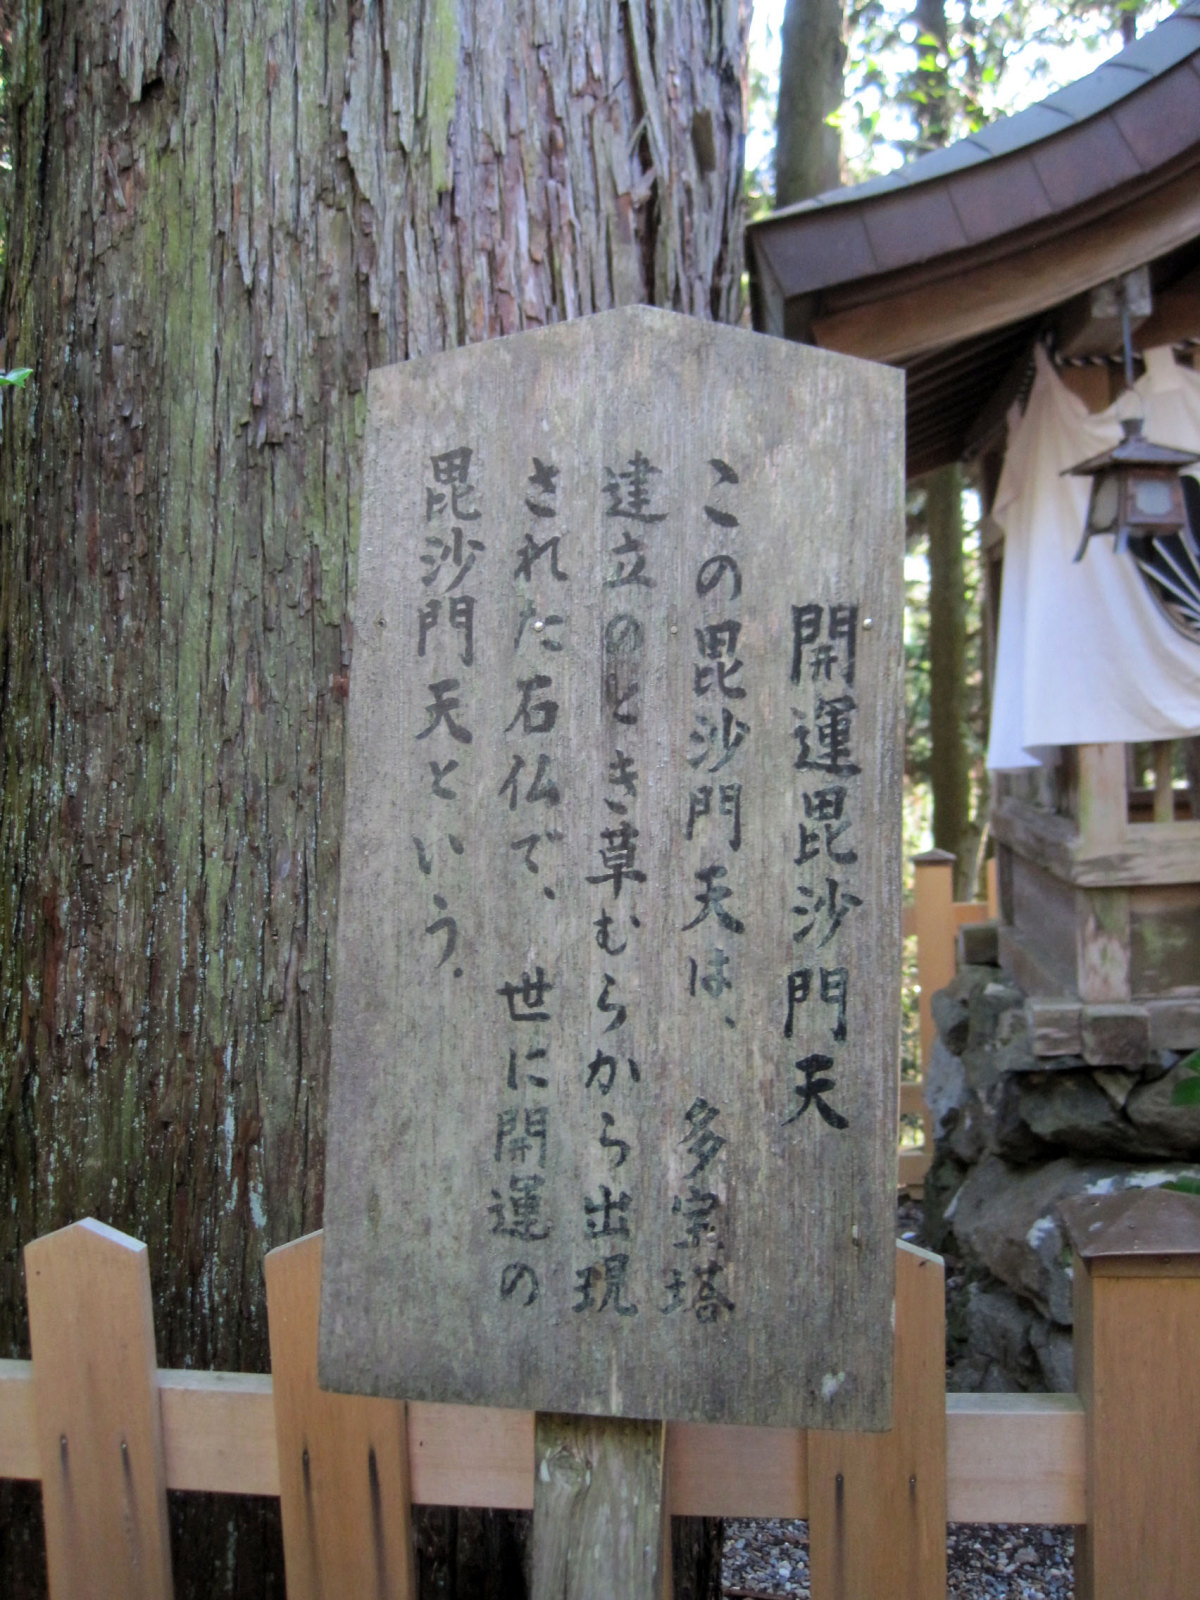 開運毘沙門天
この毘沙門天は、多宝塔
建立のとき草むらから出現
された石仏で、世に開運の
毘沙門天という.